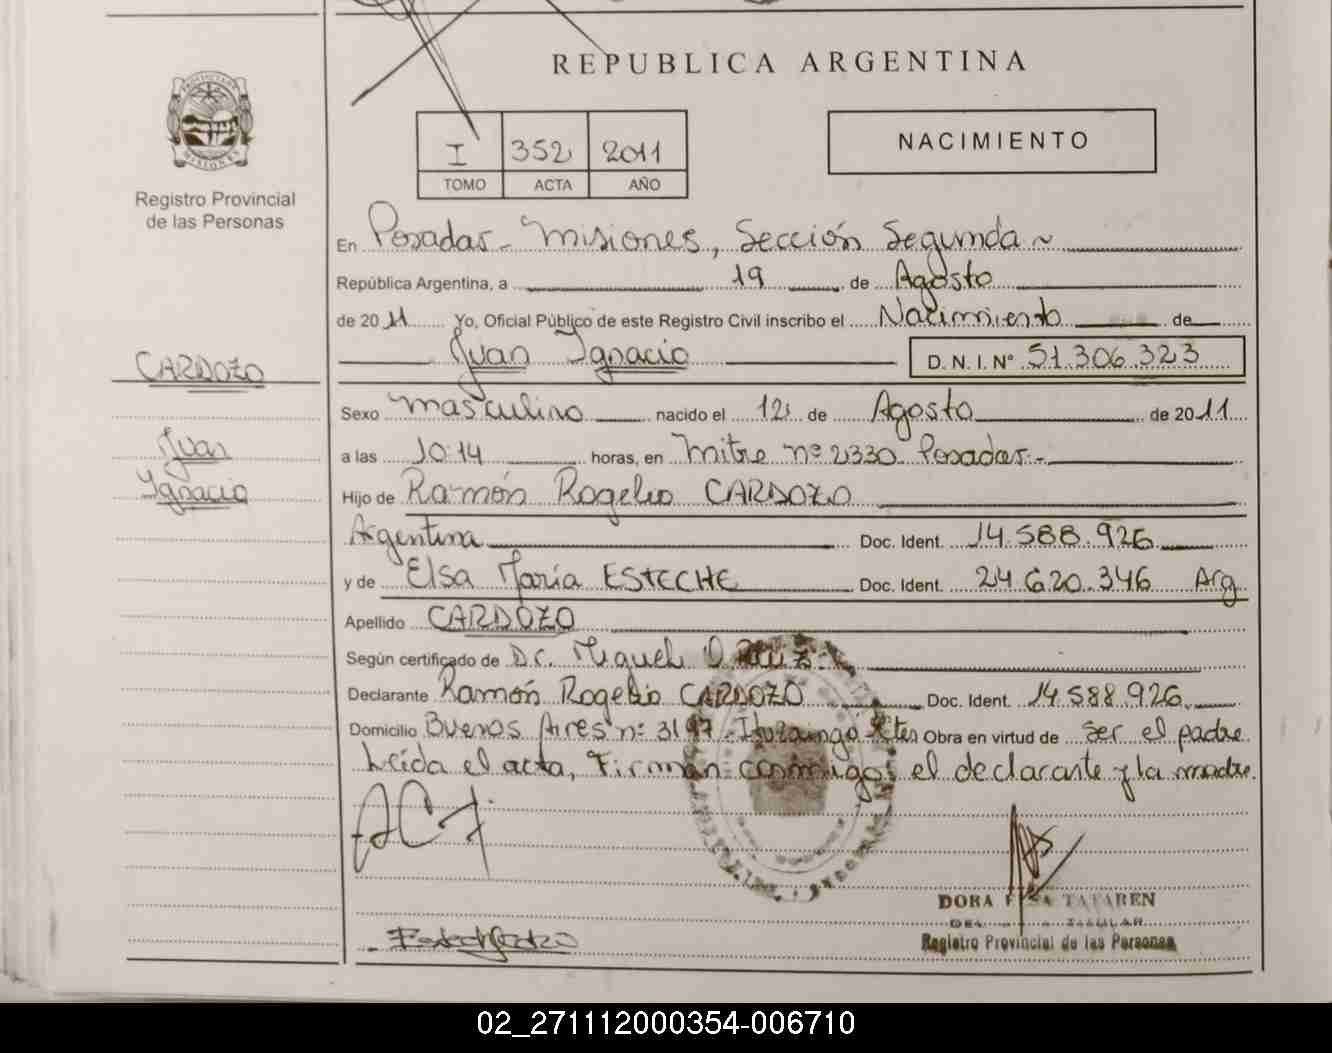 REPUBLICA ARGENTINA
PROVINCIA DE MISIONES
Registro Provincial
de las Personas
I 352 2011
TOMO ACTA AÑO
NACIMIENTO
En Posadas - Misiones, Sección Segunda ~
República Argentina, a 19 de Agosto
de 2011 Yo, Oficial Público de este Registro Civil inscribo el Nacimiento de
Juan Ignacio D. N. I. Nº 51.306.323
CARDOZO
Juan
Ignacio
Sexo masculino nacido el 12 de Agosto de 2011
a las 10:14 horas, en Mitre nº 2330 Posadas.-
Hijo de Ramón Rogelio CARDOZO
Argentina Doc. Ident. 14.588.926
y de Elsa María ESTECHE Doc. Ident. 24.620.346 Arg
Apellido CARDOZO
Según certificado de Dr. Miguel O.
Declarante Ramón Rogelio CARDOZO Doc. Ident. 14.588.926
Domicilio Buenos Aires nº 3197 - Ituzaingó Ctes Obra en virtud de ser el padre
Leída el acta, Firman conmigo el declarante y la madre.
DORA TATAREN
Registro Provincial de las Personas
02_271112000354-006710